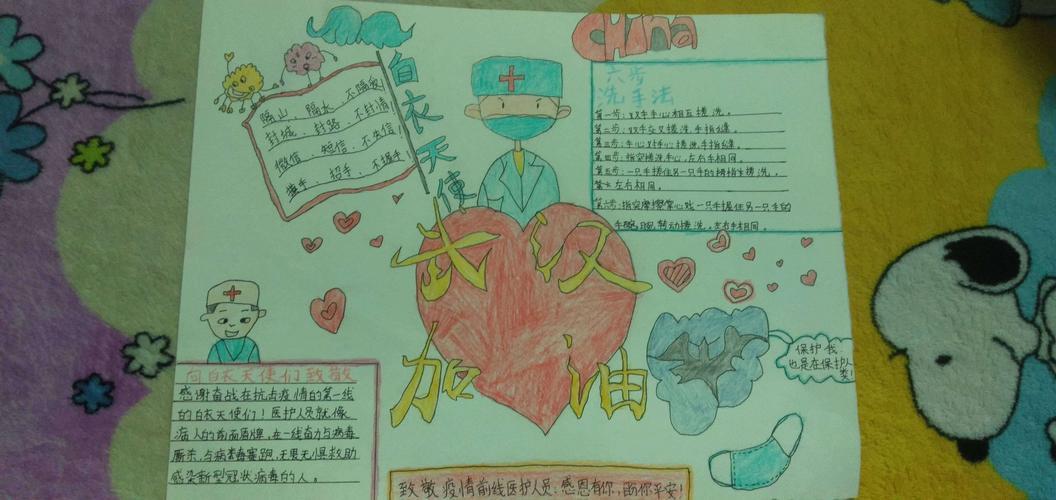 China
白衣天使
隔山、隔水、不隔爱!
封城、封路、不封情!
微信、短信、不失信!
挥手、招手、不握手!
六步
洗手法
第一步:双手手心相互搓洗。
第二步:双手交叉搓洗手指缝。
第三步:手心对手心搓洗手指缝。
第四步:指尖搓洗手心,左右手相同。
第五步:一只手握住另一只手的拇指搓洗。
左右相同。
第六步:指尖摩擦掌心或一只手握住另一只手的
手腕转动搓洗,左右手相同。
武汉
加油
保护我
也是在保护人
类!
向白衣天使们致敬
感谢奋战在抗击疫情的第一线
的白衣天使们!医护人员就像
病人的前面盾牌,在一线奋力与病毒
厮杀,与病毒赛跑,无畏无惧救助
感染新型冠状病毒的人。
致敬疫情前线医护人员:感恩有你,愿你平安!